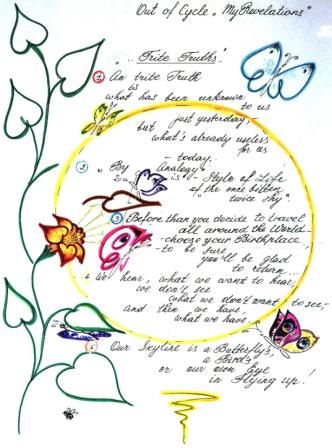 Out of Cycle „My Revelations"
"... Trite Truths"
1 An trite Truth
is
what has been unknown
to us
just yesterday,-
but
what's already useless
for us
today.
2 "By Analogy"
is - Style of Life
of the one bitten,
twice shy"
3 Before than you decide to travel
all around the World-
-choose your Birthplace,
-to be sure
you'll be glad
to return...
4 We hear, what we want to hear,
we don't see
what we don't want to see,-
and then we have,
what we have.
5 Our Skyline is a Butterfly's,
a Bird's
or our own Eye
in Flying up!